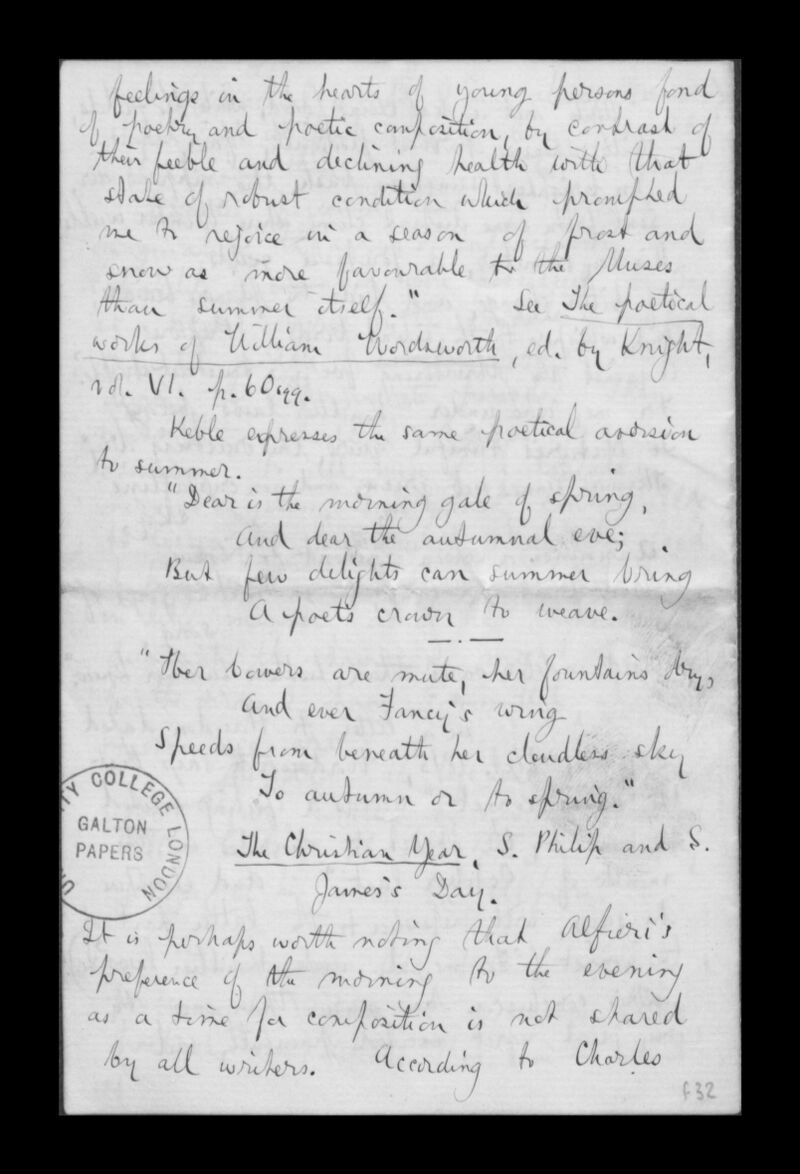 feelings in the hearts of young persons fond
of poetry and poetic composition, by contrast of
their feeble and declining health with that
state of robust condition which prompted
me to rejoice in a season of frost and
snow as more favourable to the Muses
than summer itself." See The poetical
works of William Wordsworth, ed. by Knight,
vol. VI. p. 60sqq.
Keble expresses the same poetical aversion
to summer.
"Dear is the morning gale of spring,
And dear the autumnal eve;
But few delights can summer bring
A poet's crown to weave.
"Her bowers are mute, her fountains dry,
And ever Fancy's wing
Speeds from beneath her cloudless sky
To autumn or to spring."
The Christian Year, S. Philip and S.
James's Day.
It is perhaps worth noting that Alfieri's
preference of the morning to the evening
as a time for composition is not shared
by all writers. According to Charles
f32
COLLEGE LONDON
GALTON
PAPERS